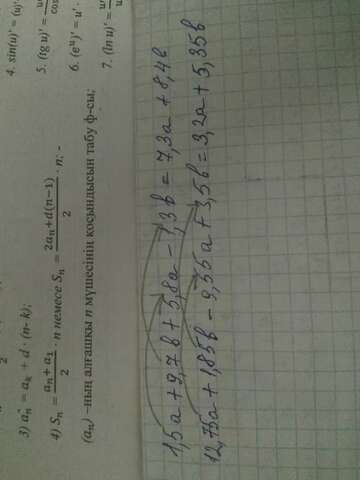 3) aₙ = aₖ + d · (n- k);
4) Sₙ = (aₙ + a₁)/2 · n немесе Sₙ = (2aₙ+d(n−1))/2 · n; -
(aₙ) –ның алғашқы n мүшесінің қосындысын табу ф-сы;
4. sin(u)' = (u)'
5. (tgu)' =
6. (eᵘ)' = u' ·
7. (ln u)' =
1,5a + 9,7b + 5,8a - 1,3b = 7,3a + 8,4b
12,75a + 1,85b - 9,55a + 3,5b = 3,2a + 5,35b